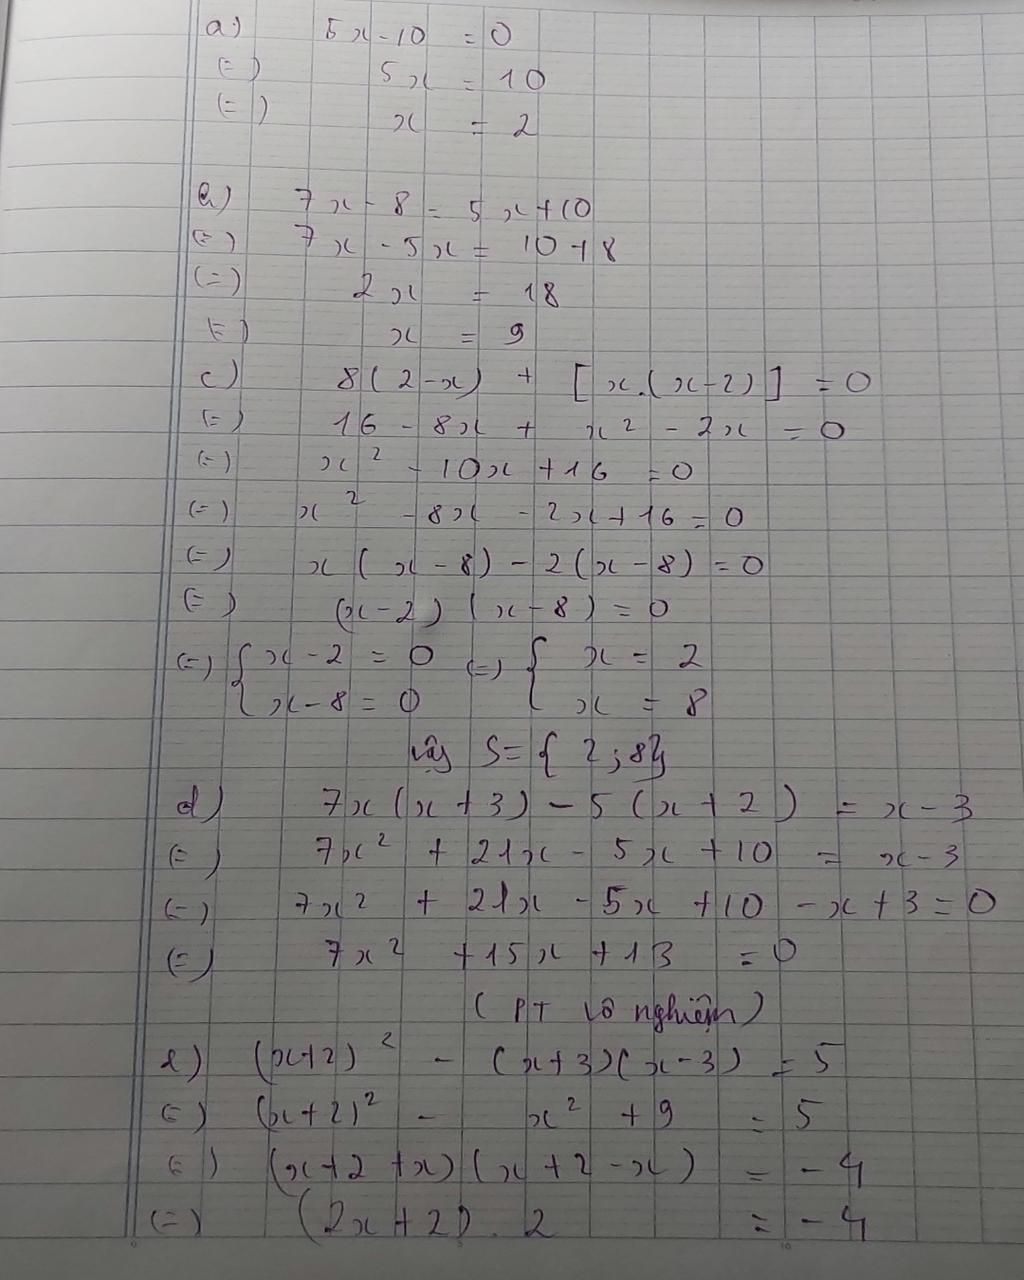 a) 5x - 10 = 0
(=) 5x = 10
(=) x = 2
b) 7x - 8 = 5x + 10
(=) 7x - 5x = 10 + 8
(=) 2x = 18
(=) x = 9
c) 8(2-x) + [x.(x-2)] = 0
(=) 16 - 8x + x² - 2x = 0
(=) x² - 10x + 16 = 0
(=) x² - 8x - 2x + 16 = 0
(=) x(x-8) - 2(x-8) = 0
(=) (x-2)(x-8) = 0
(=) { x-2 = 0 (=) { x = 2
x-8 = 0 x = 8
vậy S = {2;8}
d) 7x(x+3) - 5(x+2) = x-3
(=) 7x² + 21x - 5x + 10 = x-3
(=) 7x² + 21x - 5x + 10 - x + 3 = 0
(=) 7x² + 15x + 13 = 0
(PT vô nghiệm)
e) (x+2)² - (x+3)(x-3) = 5
(=) (x+2)² - x² + 9 = 5
(=) (x+2+x)(x+2-x) = -4
(=) (2x+2).2 = -4